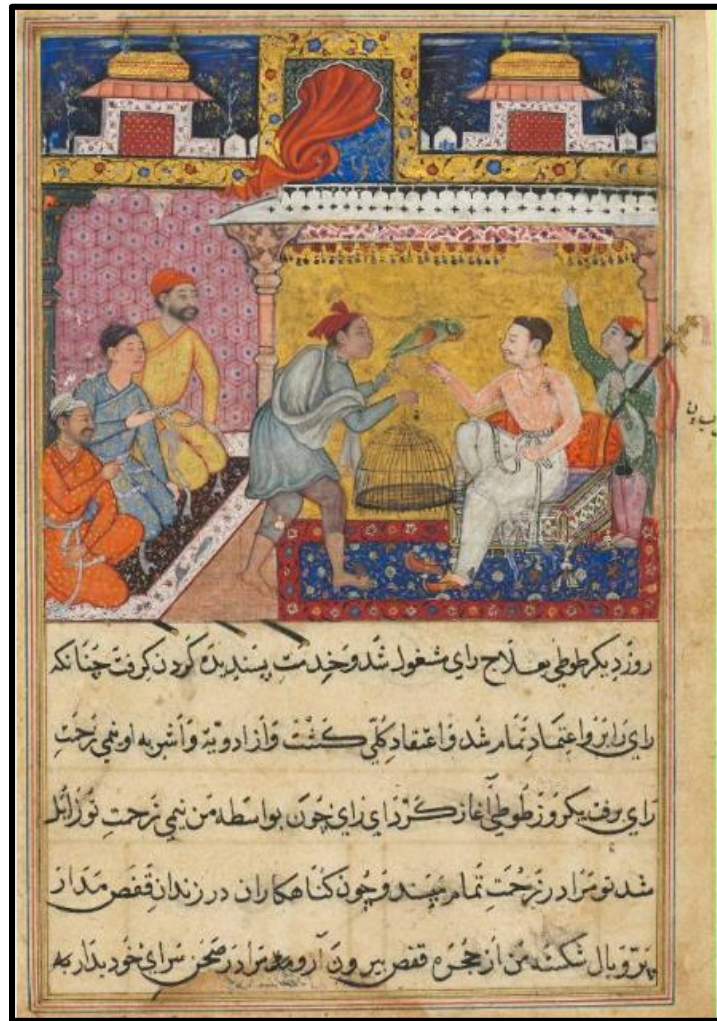 روز دیکر طوطی بعلاج رای مشغول شد و خدمت پسندیده کردن کرفت چنانکه
رای را برو اعتماد تمام شد و اعتقاد کلی کشت و از ادویه و اشربه او نیمی زحمت
رای برفت یکروز طوطی آغاز کرد ای رای چون بواسطه من نیمی زحمت تو زائل
شد تو مرا در زحمت تمام مپسند و چون کناهکاران در زندان قفص مدار
پر و بال شکسته من از حجره قفص بیرون آر و مرا در صحن سرای خود بدار به